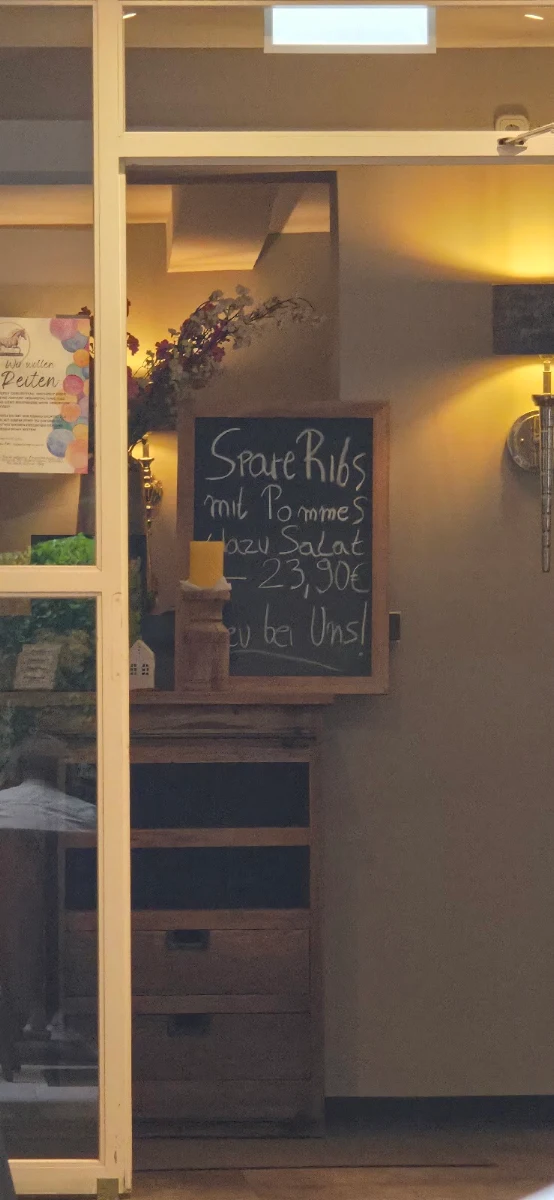 Wir wollen
Reiten
Spare Ribs
mit Pommes
dazu Salat
– 23,90€
Neu bei Uns!